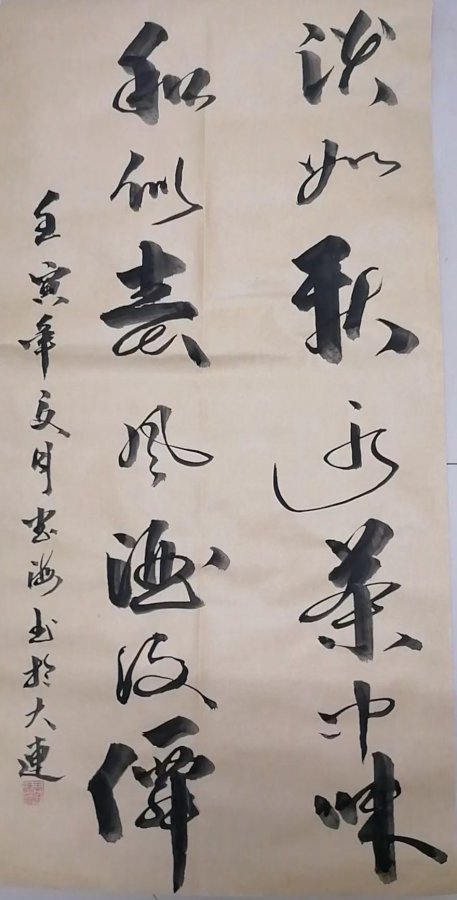 淡如秋茶中味
和似春风酒後僊
壬寅年夏月海书於大連